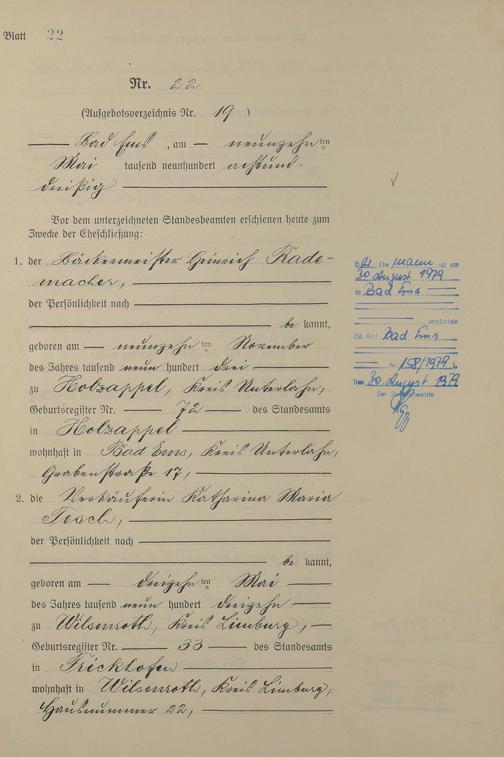 Blatt 22
Nr. 22
(Aufgebotsverzeichnis Nr. 19)
Bad Ems, am neunzehnten
Mai tausend neunhundert achtund-
dreißig
Vor dem unterzeichneten Standesbeamten erschienen heute zum
Zwecke der Eheschließung:
1. der Bäckermeister Heinrich Rade-
macher,
der Persönlichkeit nach
be kannt,
geboren am neunzehnten November
des Jahres tausend neun hundert drei
zu Holzappel, Kreis Unterlahn,
Geburtsregister Nr. 72 des Standesamts
in Holzappel
wohnhaft in Bad Ems, Kreis Unterlahn,
Grabenstraße 17,
2. die Verkäuferin Katharina Maria
Tesch,
der Persönlichkeit nach
be kannt,
geboren am dreizehnten Mai
des Jahres tausend neun hundert dreizehn
zu Wilsenroth, Kreis Limburg,
Geburtsregister Nr. 33 des Standesamts
in Frickhofen
wohnhaft in Wilsenroth, Kreis Limburg,
Hausnummer 22,
Der Ehemann ist am
30. August 1979
in Bad Ems
verstorben
(St. Amt Bad Ems
Nr. 158/1979)
Den 30. August 1979
Der Standesbeamte